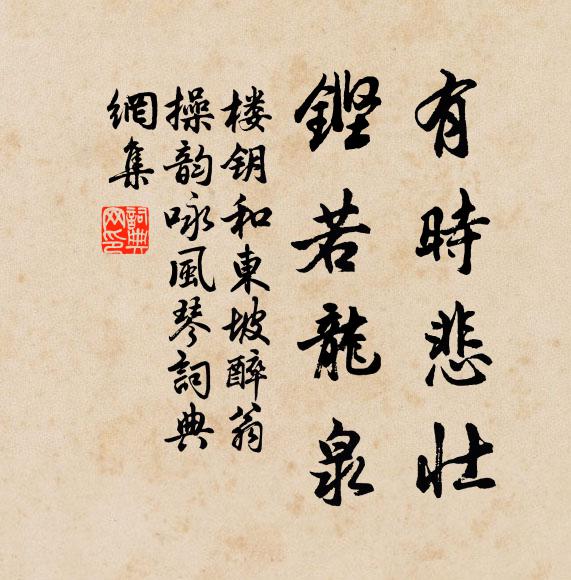 有時悲壯
鏗若龍泉
楼钥和東坡醉翁
操韵咏風琴詞典
網集
詞典
网印